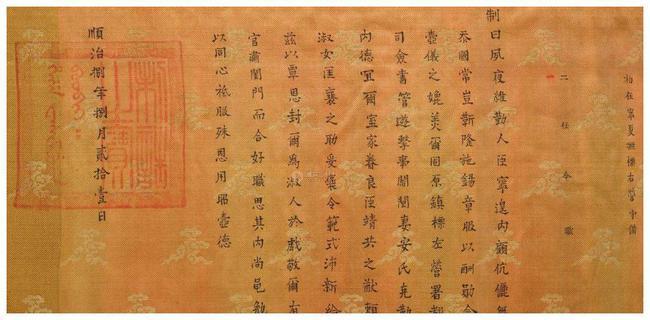 初任寧夏撫標右營守備
二任今職
制曰夙夜維勤人臣寧遑內顧伉儷無
忝國常豈靳隆施錫章服以酬勛合
壼儀之媲美爾固原鎮標左營署都
司僉書管遊擊事閻妻安氏克勤
內德宜爾室家養良臣靖共之猷賴
淑女匡襄之助令範式沛新綸
茲以覃恩封爾為淑人於戲敬爾有
官肅閨門而合好職思其內尚黽勉
以同心祗服殊恩用昭壼德
順治捌年捌月貳拾壹日